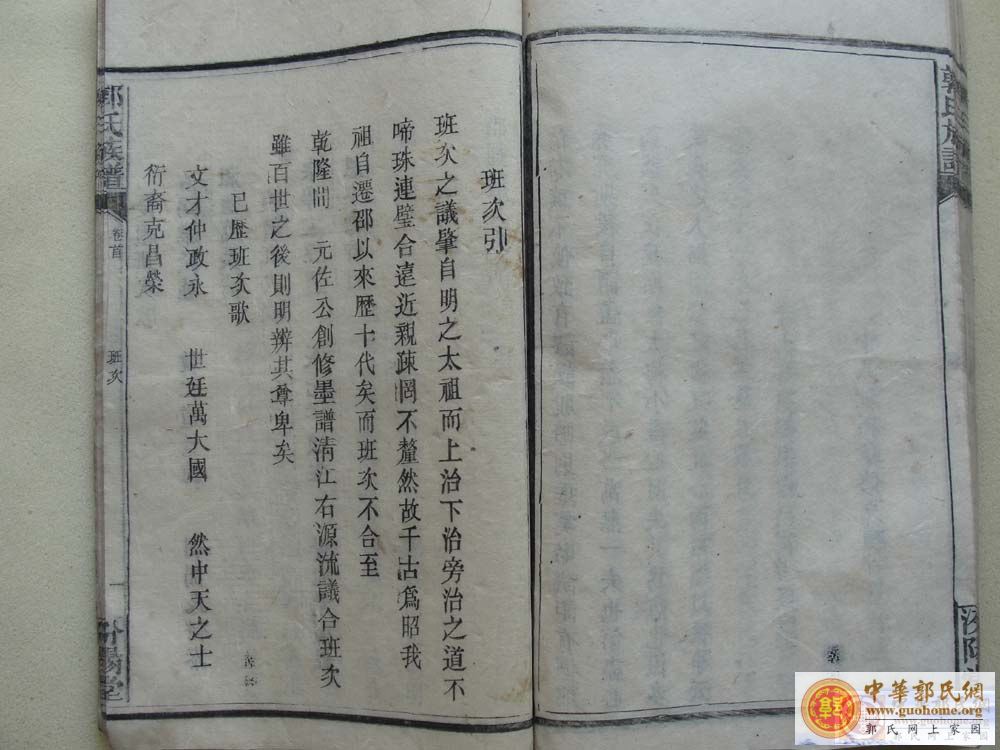 郭氏族譜
班次引
班次之議肇自明之太祖而上治下治旁治之道不
啻珠連璧合遠近親疎罔不釐然故千古爲昭我
祖自遷邵以來歷十代矣而班次不合至
乾隆間 元佐公創修墨譜清江右源流議合班次
雖百世之後則明辨其尊卑矣
已歷班次歌
文才仲政永 世廷萬大國 然中天之士
衍裔克昌榮
郭氏族譜 卷首 班次 一 汾陽堂
中華郭氏網
www.guohome.org
郭氏网上家园